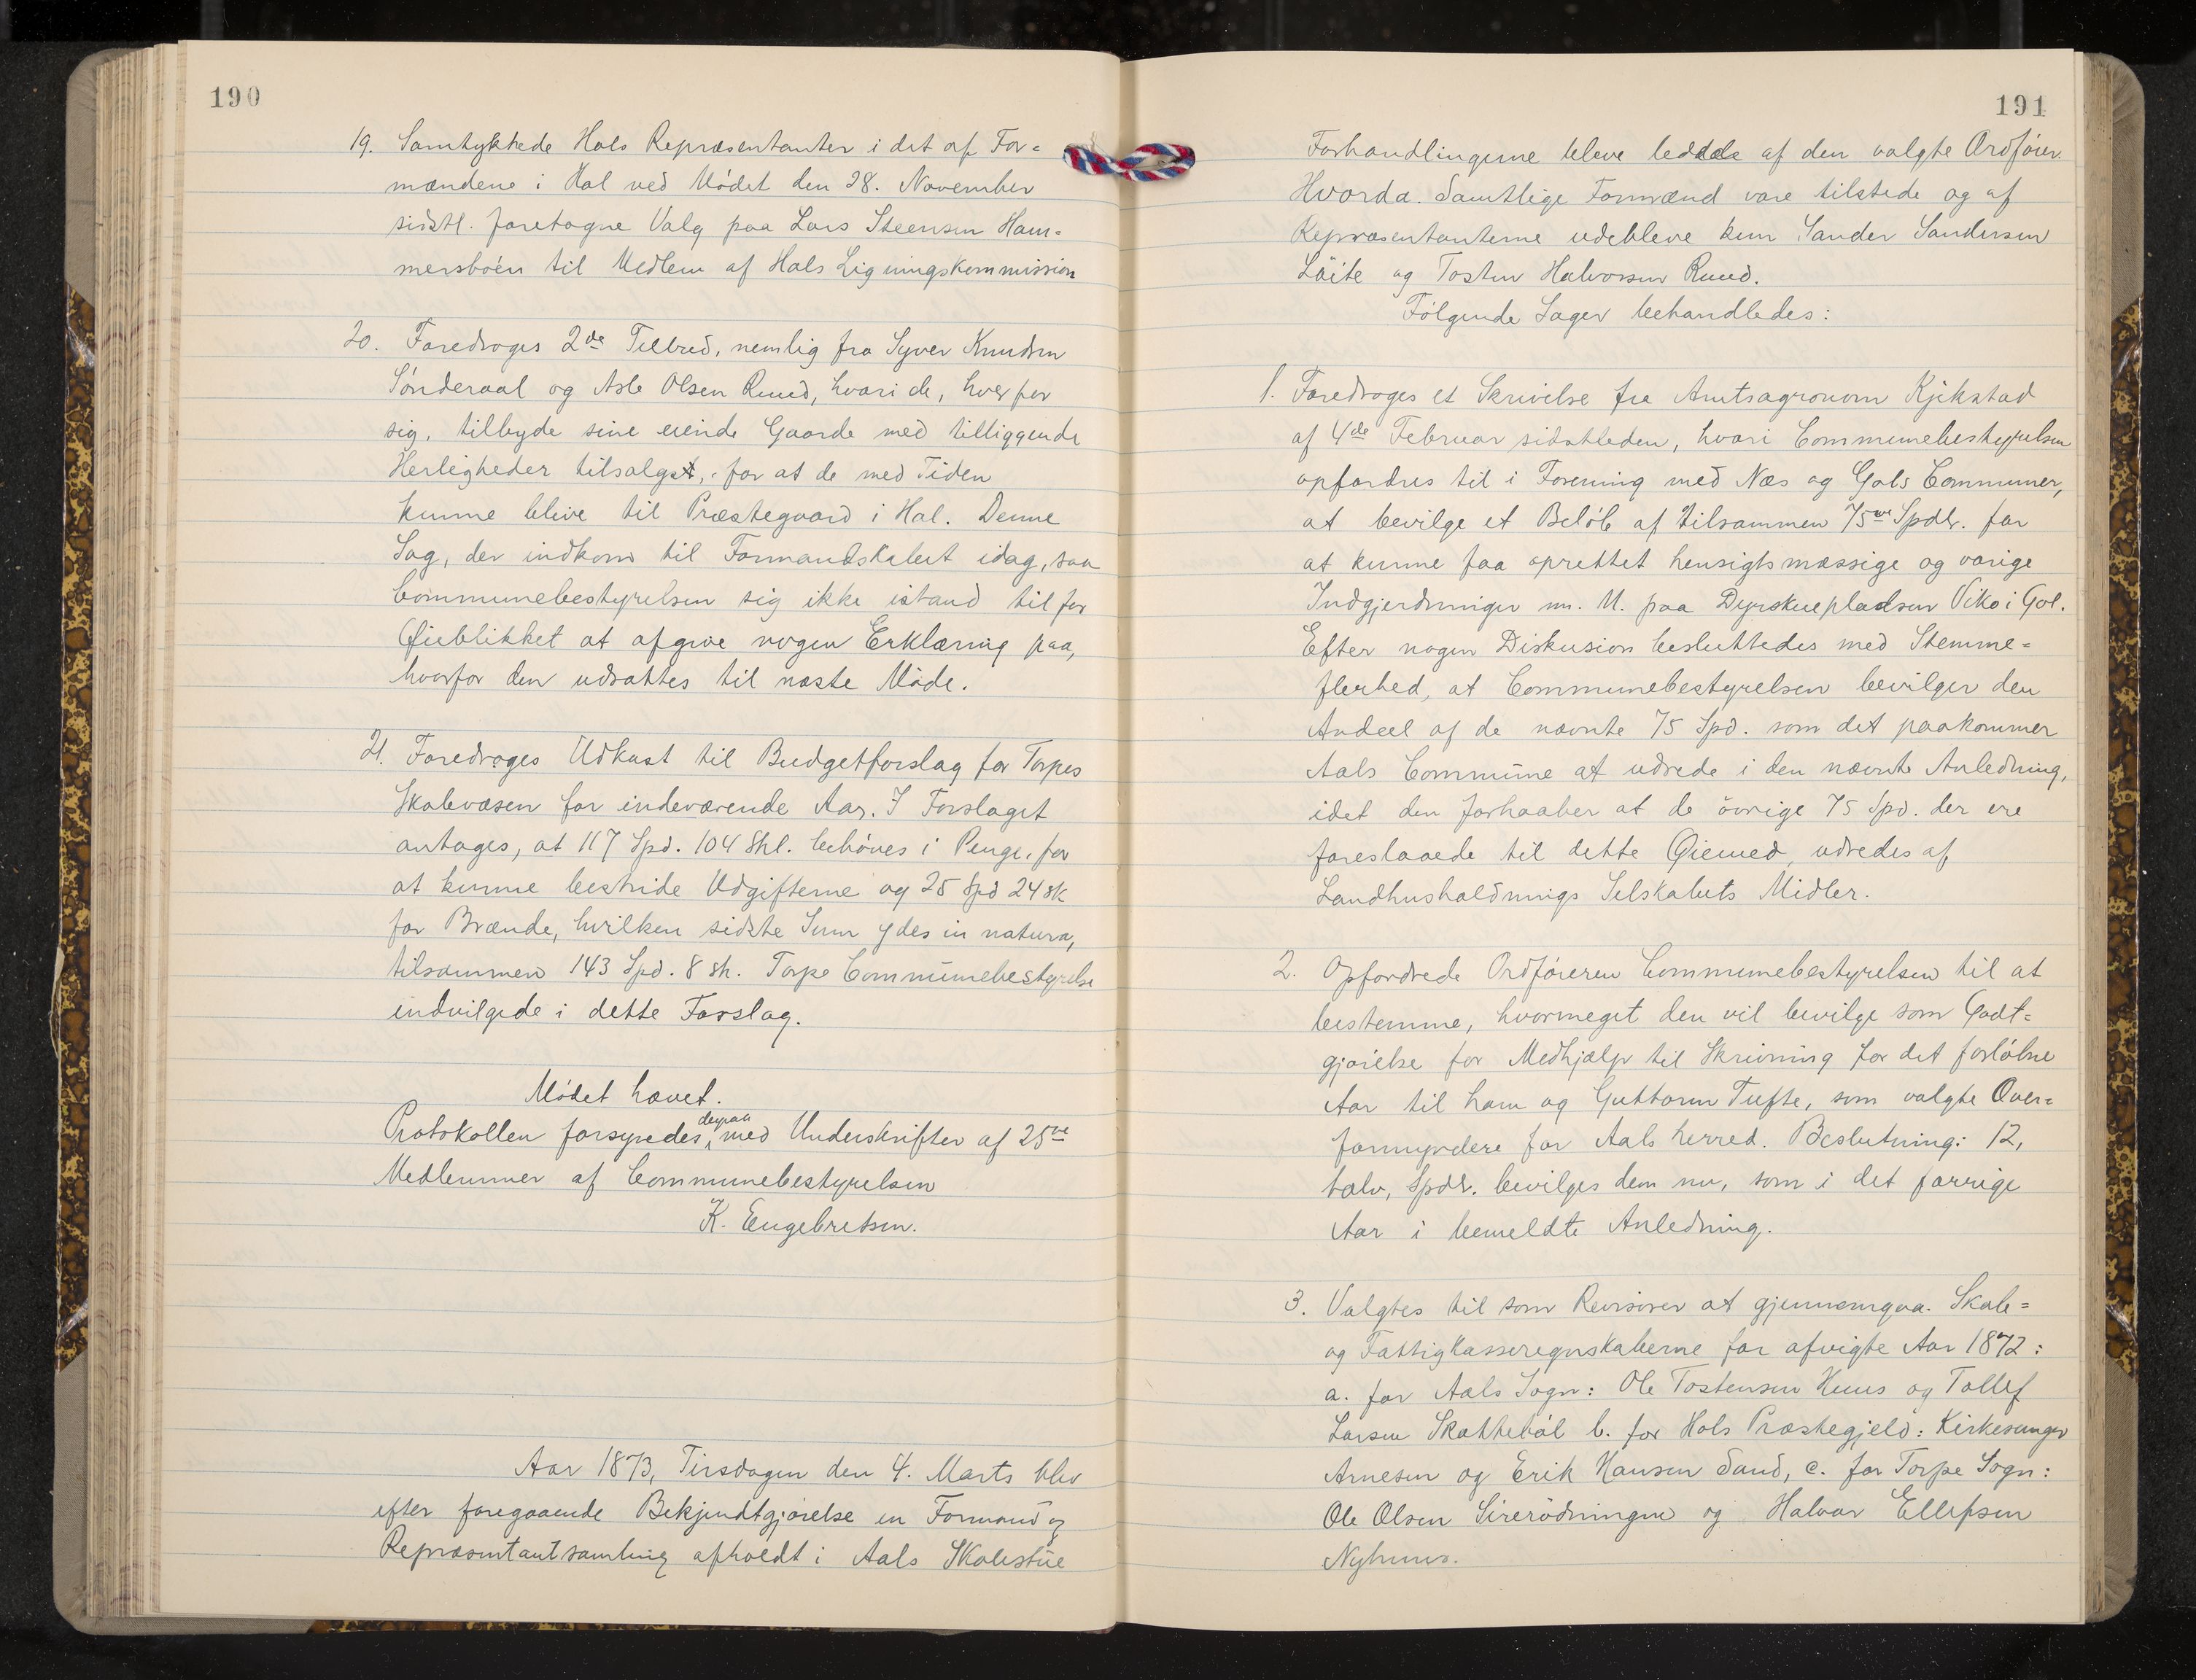 190
19. Samtykkede Hols Repræsentanter i det af For=
mændene i Hol ved Mødet den 28. November
sidstl. foretagne Valg paa Lars Steensen Ham=
mersbøen til Medlem af Hols Ligningskommission
20. Foredroges 2de Tilbud, nemlig fra Syver Knudsen
Sønderaal og Asle Olsen Ruud, hvori de, hver for
sig, tilbyde sine eiende Gaarde med tilliggende
Herligheder tilsalgst, for at de med Tiden
kunne blive til Præstegaard i Hol. Denne
Sag, der indkom til Formandskabet idag, saa
Communebestyrelsen sig ikke istand til for
Øieblikket at afgive nogen Erklæring paa,
hvorfor den udsattes til næste Møde.
21. Foredroges Udkast til Budgetforslag for Torpes
Skolevæsen for indeværende Aar. I Forslaget
antages, at 117 Spd. 104 Skl. behøves i Penge, for
at kunne bestride Udgifterne og 25 Spd 24 sk
for Brænde, hvilken sidste Sum ydes in natura,
tilsammen 143 Spd. 8 sk. Torpe Communebestyrelse
indvilgede i dette Forslag.
Mødet hævet.
Protokollen forsynedes derpaa med Underskrifter af 25ve
Medlemmer af Communebestyrelsen
K. Engebretsen.
Aar 1873, Tirsdagen den 4. Marts blev
efter foregaaende Bekjendtgjørelse en Formand og
Repræsentantsamling afholdt i Aals Skolestue
191
Forhandlingerne bleve ledede af den valgte Ordfører
Hvorda. Samtlige Formænd vare tilstede og af
Repræsentanterne udebleve kun Sander Sandersen
Löite og Tosten Halvorsen Ruud.
Følgende Sager behandledes:
1. Foredroges et Skrivelse fra Amtsagronom Kjikstad
af 4de Februar sidstleden, hvori Communebestyrelsen
opfordres til i Forening med Næs og Gols Communer,
at bevilge et Beløb af tilsammen 75ve Spdlr. for
at kunne faa oprettet hensigtsmæssige og varige
Indgjerdninger m. M. paa Dyrskuepladsen Viko i Gol.
Efter nogen Diskusion besluttedes med Stemme=
flerhed, at Communebestyrelsen bevilger den
Andeel af de nævnte 75 Spd. som det paakommer
Aals Commune at udrede i den nævnte Anledning,
idet den forhaaber at de øvrige 75 Spd. der ere
foreslaaede til dette Øiemed, udredes af
Landhusholdnings Selskabets Midler.
2. Opfordrede Ordføreren Communebestyrelsen til at
bestemme, hvormeget den vil bevilge som Godt=
gjørelse for Medhjælp til Skrivning for det forløbne
Aar til ham og Guttorm Tufte, som valgte Over=
formyndere for Aals herred. Beslutning: 12,
tolv, Spdlr. bevilges dem nu, som i det forrige
Aar i bemeldte Anledning.
3. Valgtes til som Revisorer at gjennemgaa Skole=
og Fattigkasseregnskaberne for afvigte Aar 1872:
a. for Aals Sogn: Ole Tostensen Huus og Tollef
Larsen Skattebøl b. for Hols Præstegjeld: Kirkesanger
Arnesen og Erik Hansen Sand, c. for Torpe Sogn:
Ole Olsen Sirerødningen og Halvor Ellefsen
Nyhuus.